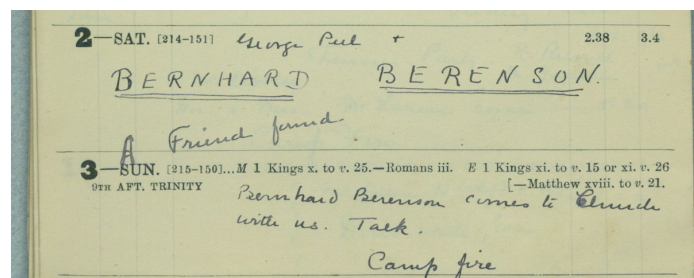 2—SAT. [214-151] George Peel + 2.38 3.4
BERNHARD BERENSON.
A Friend found.
3—SUN. [215-150]...M 1 Kings x. to v. 25.—Romans iii. E 1 Kings xi. to v. 15 or xi. v. 26
9TH AFT. TRINITY [—Matthew xviii. to v. 21.
Bernhard Berenson comes to Church
with us. Talk.
Camp fire